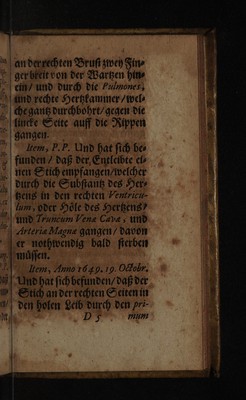 an der rechten Brust zwey Fin-
ger breit von der Wartzen hin-
ein / und durch die Pulmones,
und rechte Hertzkammer / wel-
che gantz durchbohrt / gegen die
lincke Seite auff die Rippen
gangen.
Item, P. P. Und hat sich be-
funden / daß der Entleibte ei-
nen Stich empfangen / welcher
durch die Substantz des Her-
tzens in den rechten Ventricu-
lum, oder Höle des Hertzens /
und Truncum Venæ Cavæ, und
Arteriæ Magnæ gangen / davon
er nothwendig bald sterben
müssen.
Item, Anno 1649. 19. Octobr.
Und hat sich befunden / daß der
Stich an der rechten Seiten in
den holen Leib durch den pri-
D 5 mum